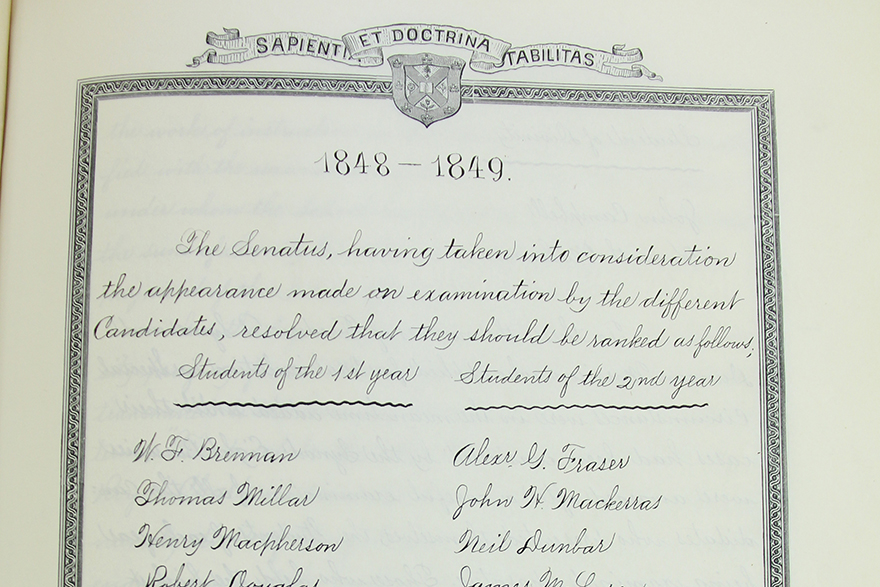 SAPIENTI ET DOCTRINA TABILITAS
1848 – 1849.
The Senatus, having taken into consideration
the appearance made on examination by the different
Candidates, resolved that they should be ranked as follows;
Students of the 1st year
Students of the 2nd year
W. F. Brennan
Thomas Millar
Henry Macpherson
Robert Douglas
Alexr. G. Fraser
John H. Mackerras
Neil Dunbar
James M.